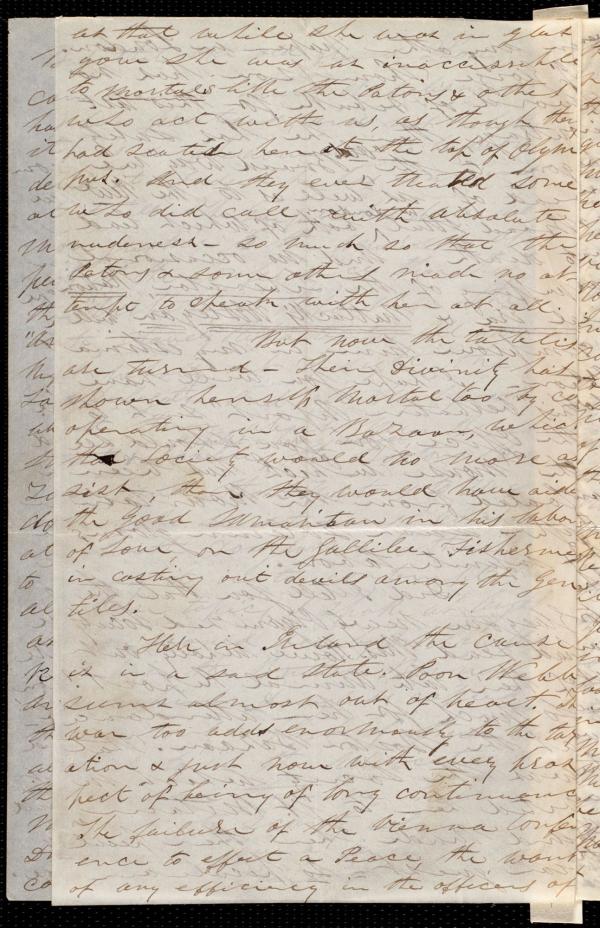 at that while she was in glas
gow she was as inaccessible
to mortals like the Patons & others
who act with us, as though they
had seated her at the top of Olym
pus. And they even treated some
who did call with absolute
rudeness - so much so that the
Patons & some others made no at
tempt to speak with her at all.
But now the tables
are turned - Their divinity has
shown herself mortal too by co
operating in a Bazaar, which
the Society would no more as
sist, than they would have aided
the good Samaritan in his labor
of love or the Gallilee Fishermen
in casting out devils among the Gen
tiles.
Here in Ireland the cause
is in a sad state. Poor Webb
seems almost out of heart. The
war too adds enormously to the tax
ation & just now with every pros
pect of being of long continuance
The failure of the Vienna Confer
ence to effect a Peace, the want
of any efficiency in the officers of